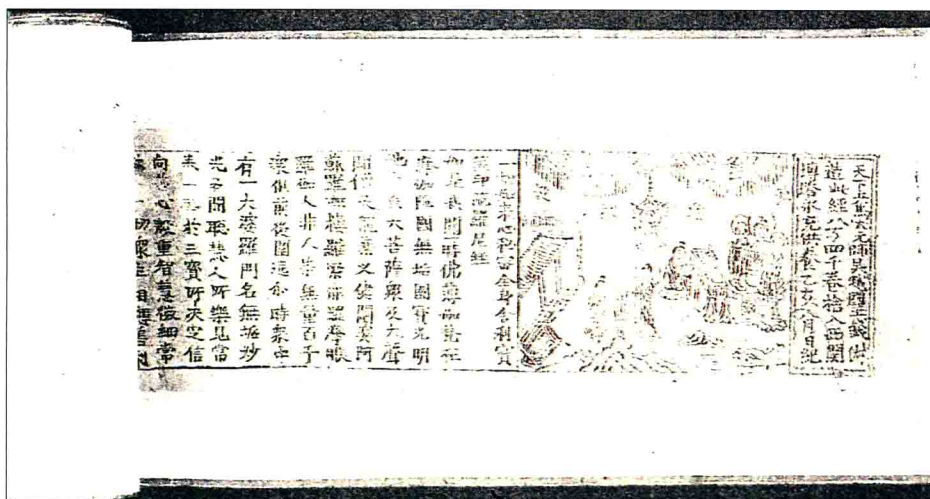 天下兵馬大元帥吳越國王錢俶
造此經八万四千卷捨入西關
塼塔永充供養乙亥八月日紀
一切如來心秘密全身舍利寶
篋印陀羅尼經
如是我聞一時佛薄伽梵在
摩伽陀國無垢園寶光明
池中與大菩薩眾及大聲
聞僧天龍藥叉健闥婆阿
蘇羅迦樓羅緊那羅摩睺
羅伽人非人等無量百千
衆俱前後圍遶尒時衆中
有一大婆羅門名無垢妙
光多聞聰慧人所樂見常
奉十善於三寶所決定信
向善心殷重智慧微細常
一切衆生相應善利